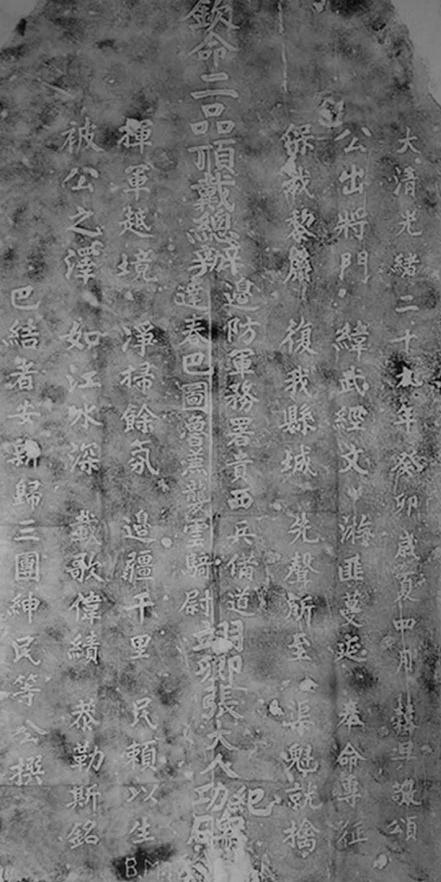 大清光緒二十九年癸卯歲夏中月穀旦敬頌
公出將門 緯武經文 游匪蔓延 奉命專征
保我黎庶 復我縣城 先聲所至 渠魁就擒
欽命二品頂戴總辦邊防軍務署貴西兵備道達春巴圖魯世襲雲騎尉翊卿張大人功
揮軍越境 淨掃餘氛 邊疆千里 民賴以生
被公之澤 如江水深 載歌偉績 恭勒斯銘
巴結者安新歸三團紳民等公撰